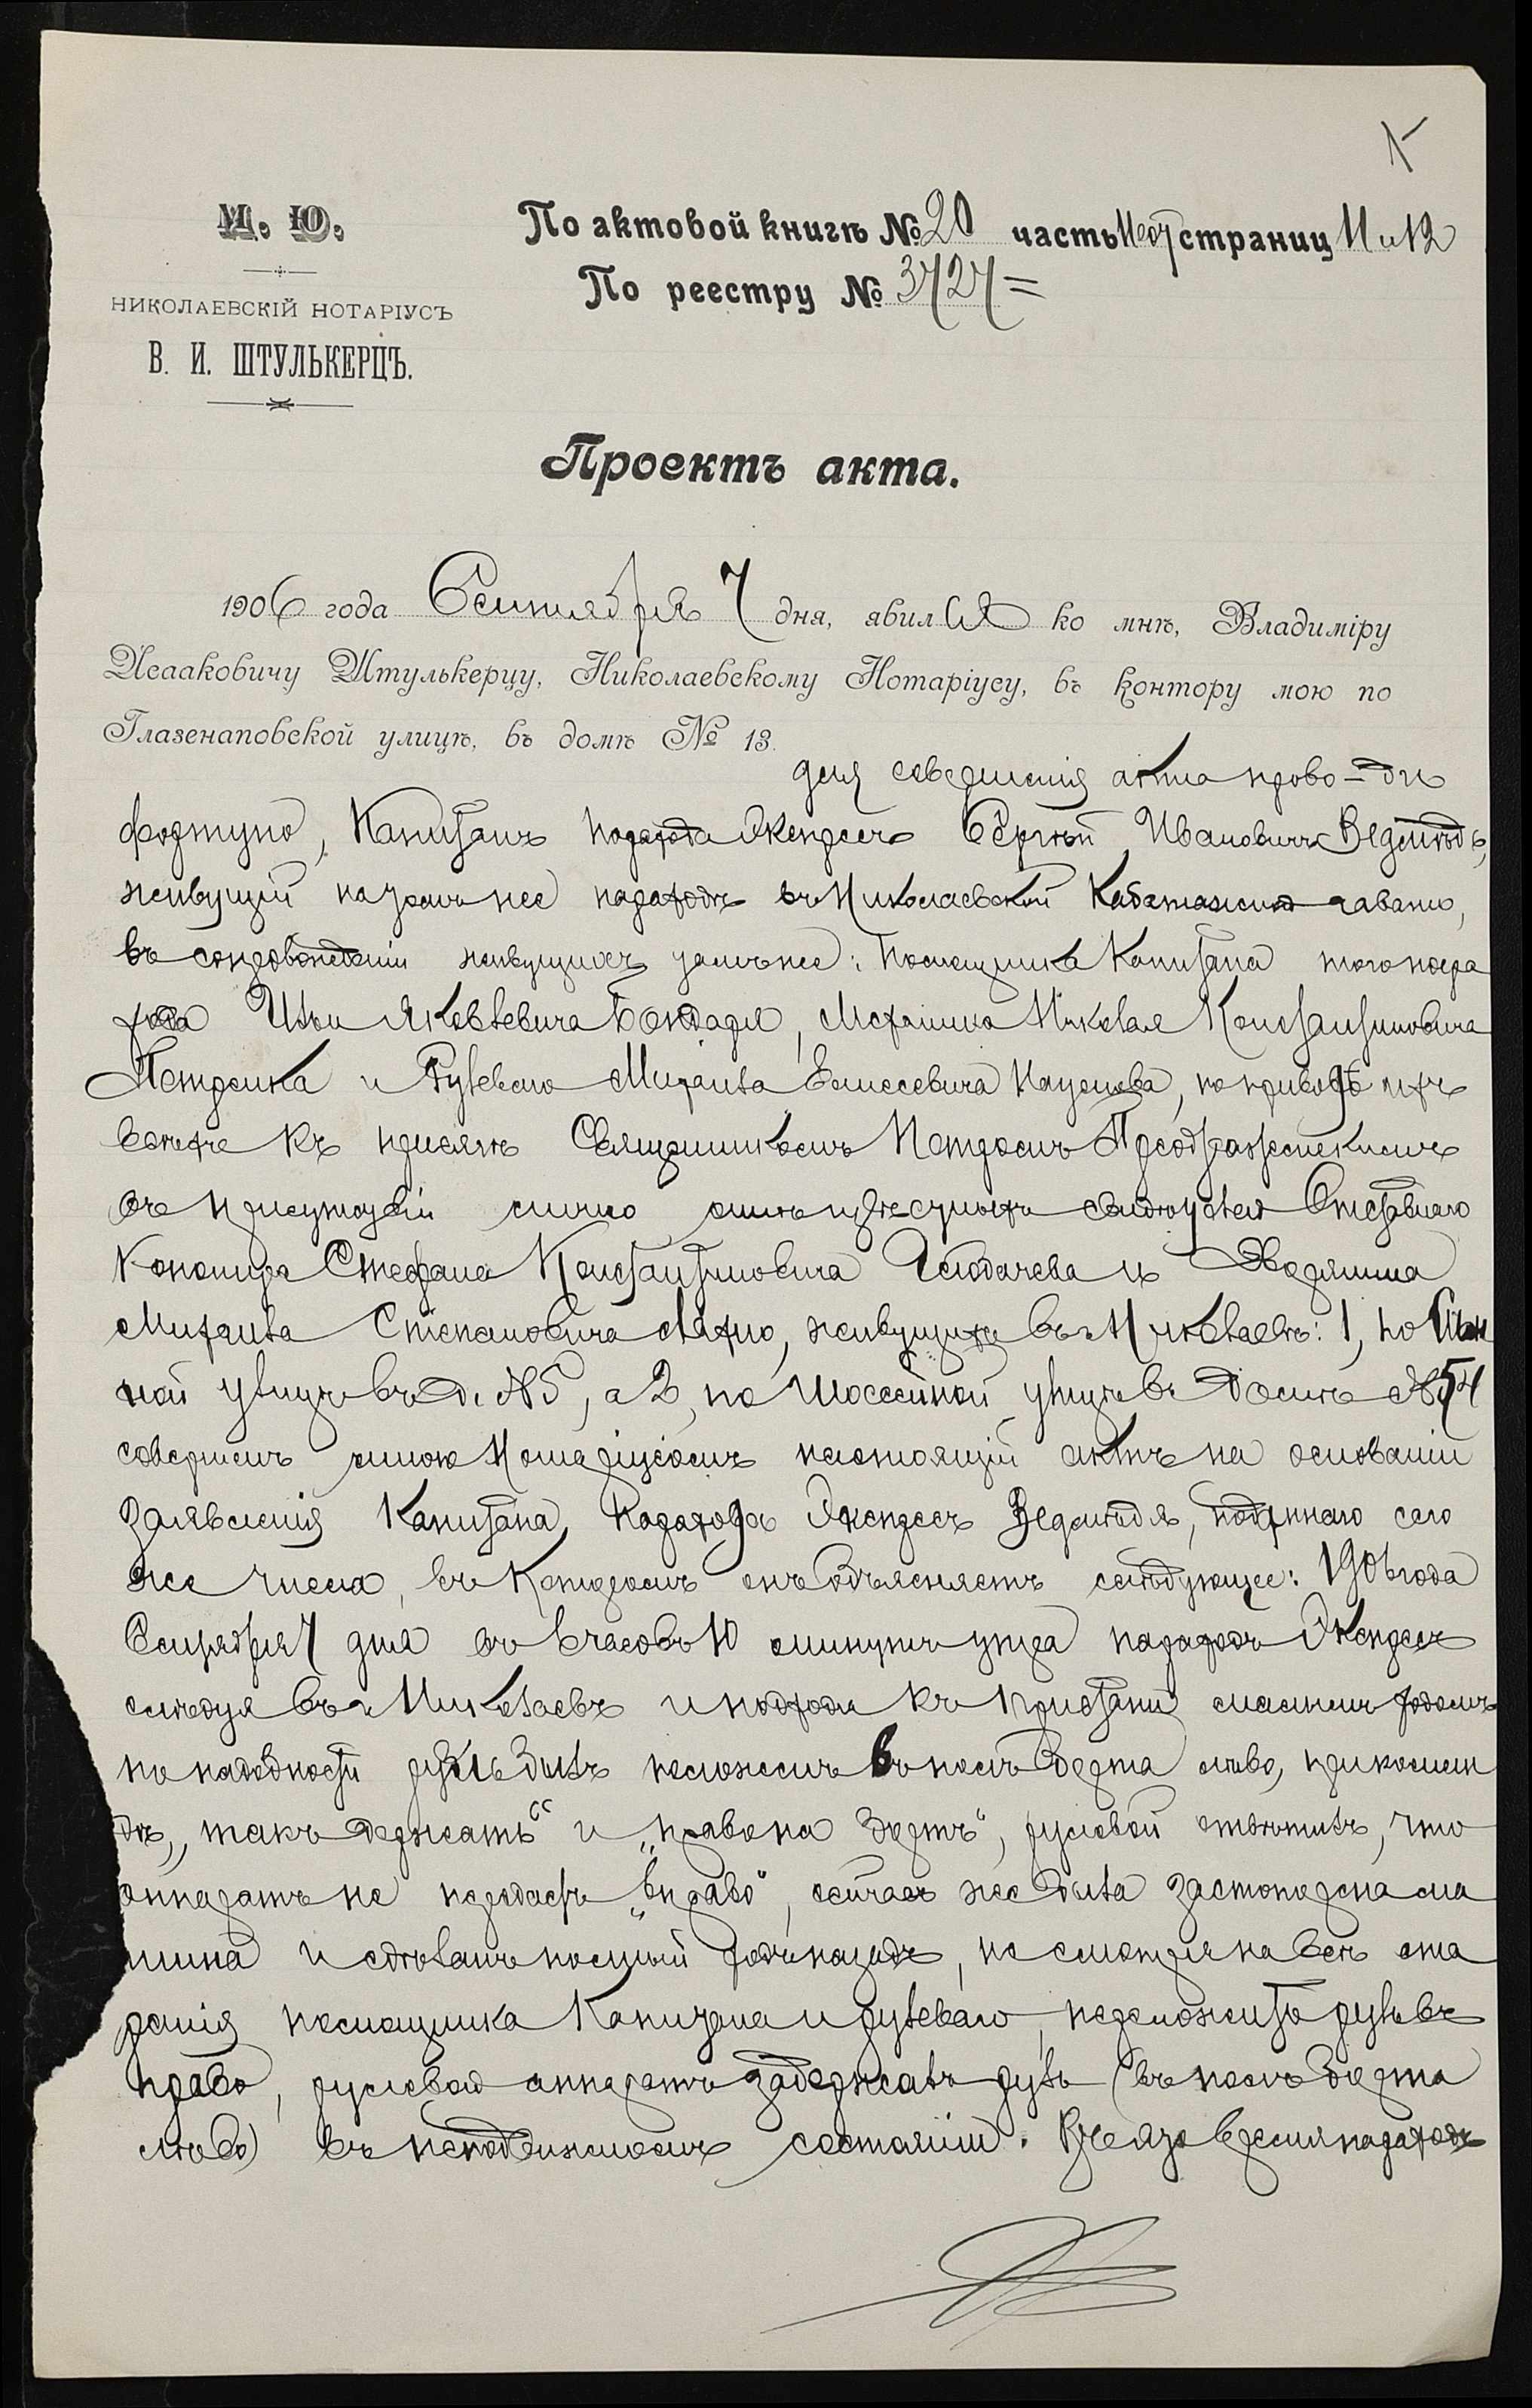 М. Ю.
НИКОЛАЕВСКІЙ НОТАРІУСЪ
В. И. ШТУЛЬКЕРЦЪ.
По актовой книгѣ № 20 часть страниц 11 и 12
По реестру № 3727 =
Проектъ акта.
1906 года Сентября 7 дня, явился ко мнѣ, Владиміру
Исааковичу Штулькерцу, Николаевскому Нотаріусу, въ контору мою по
Глазенаповской улицѣ, въ домѣ № 13.
для совершенія акта проводъ
фортуно, Капитанъ парохода Экспрессъ Сергѣй Ивановичъ
живущій на томъ же пароходѣ въ Николаевской гавани,
въ сопровожденіи живущихъ тамъ же: Помощника Капитана того же паро
хода Ильи Яковлевича Бондаря, Механика Николая Константиновича
Петренка и Рулевого Михаила Елисеевича, по приводѣ ихъ
всѣхъ къ присягѣ Священникомъ Петромъ Преображенскимъ
въ присутствіи лично мнѣ извѣстныхъ свидѣтелей Отставного
Канонира Стефана Константиновича и Дворянина
Михаила Степановича, живущихъ въ г. Николаевѣ: 1, по
ной улицѣ въ д. № 5, а 2, по Шоссейной улицѣ въ домѣ № 54
совершенъ мною Нотаріусомъ настоящій актъ на основаніи
заявленія Капитана Парохода Экспрессъ, поданнаго сего
же числа, въ которомъ онъ объясняетъ слѣдующее: 1906 года
Сентября 7 дня въ 6 часовъ 10 минутъ утра пароходъ Экспрессъ
слѣдуя въ г. Николаевъ и подходя къ пристани малымъ ходомъ
по надобности руль былъ положенъ въ полъ борта лѣво, при команд
дѣ „такъ держать“ и „право на бортъ“, рулевой отвѣтилъ, что
аппаратъ не передаетъ „вправо“, сейчасъ же была застопорена ма
шина и сдѣланъ полный ходъ назадъ, не смотря на всѣ ста
ранія помощника Капитана и рулевого переложить руль въ
право, рулевой аппаратъ задержалъ руль (въ полъ борта
лѣво) въ неподвижномъ состояніи. Въ это время пароходъ